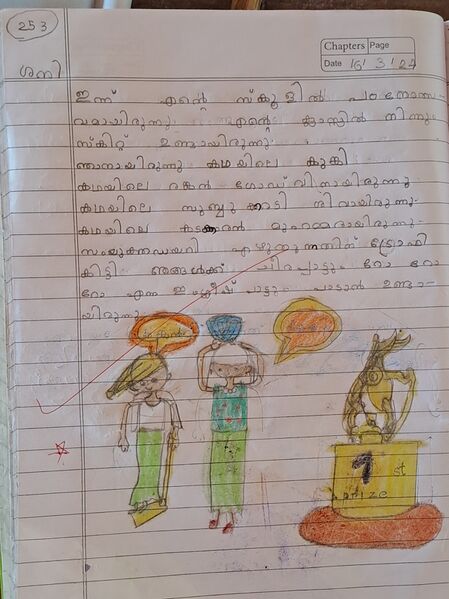 253
Chapters Page
Date 16' 3' 24
ശനി
ഇന്ന് എന്റെ സ്കൂളിൽ പഠനോത്സ-
വമായിരുന്നു. എന്റെ ക്ലാസ്സിൽ നിന്നും
സ്കിറ്റ് ഉണ്ടായിരുന്നു.
ഞാനായിരുന്നു കഥയിലെ കുക്കി
കഥയിലെ ഗോഡ് വിനായിരുന്നു
കഥയിലെ സുബ്ബു ക്കാടി ശിവായിരുന്നു.
കഥയിലെ കടക്കാരൻ മുഹമ്മദായിരുന്നു.
സംയുക്തഡയറി എഴുതുന്നതിന് ട്രോഫി
കിട്ടി. ഞങ്ങൾക്ക് പാട്ടും റോ റോ
റോ എന്ന ഇംഗ്ലീഷ് പാട്ടും പാടാൻ ഉണ്ടാ-
യിരുന്നു.
1 st
prize